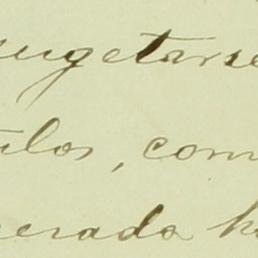 sugetarse
ulos, com
erada h